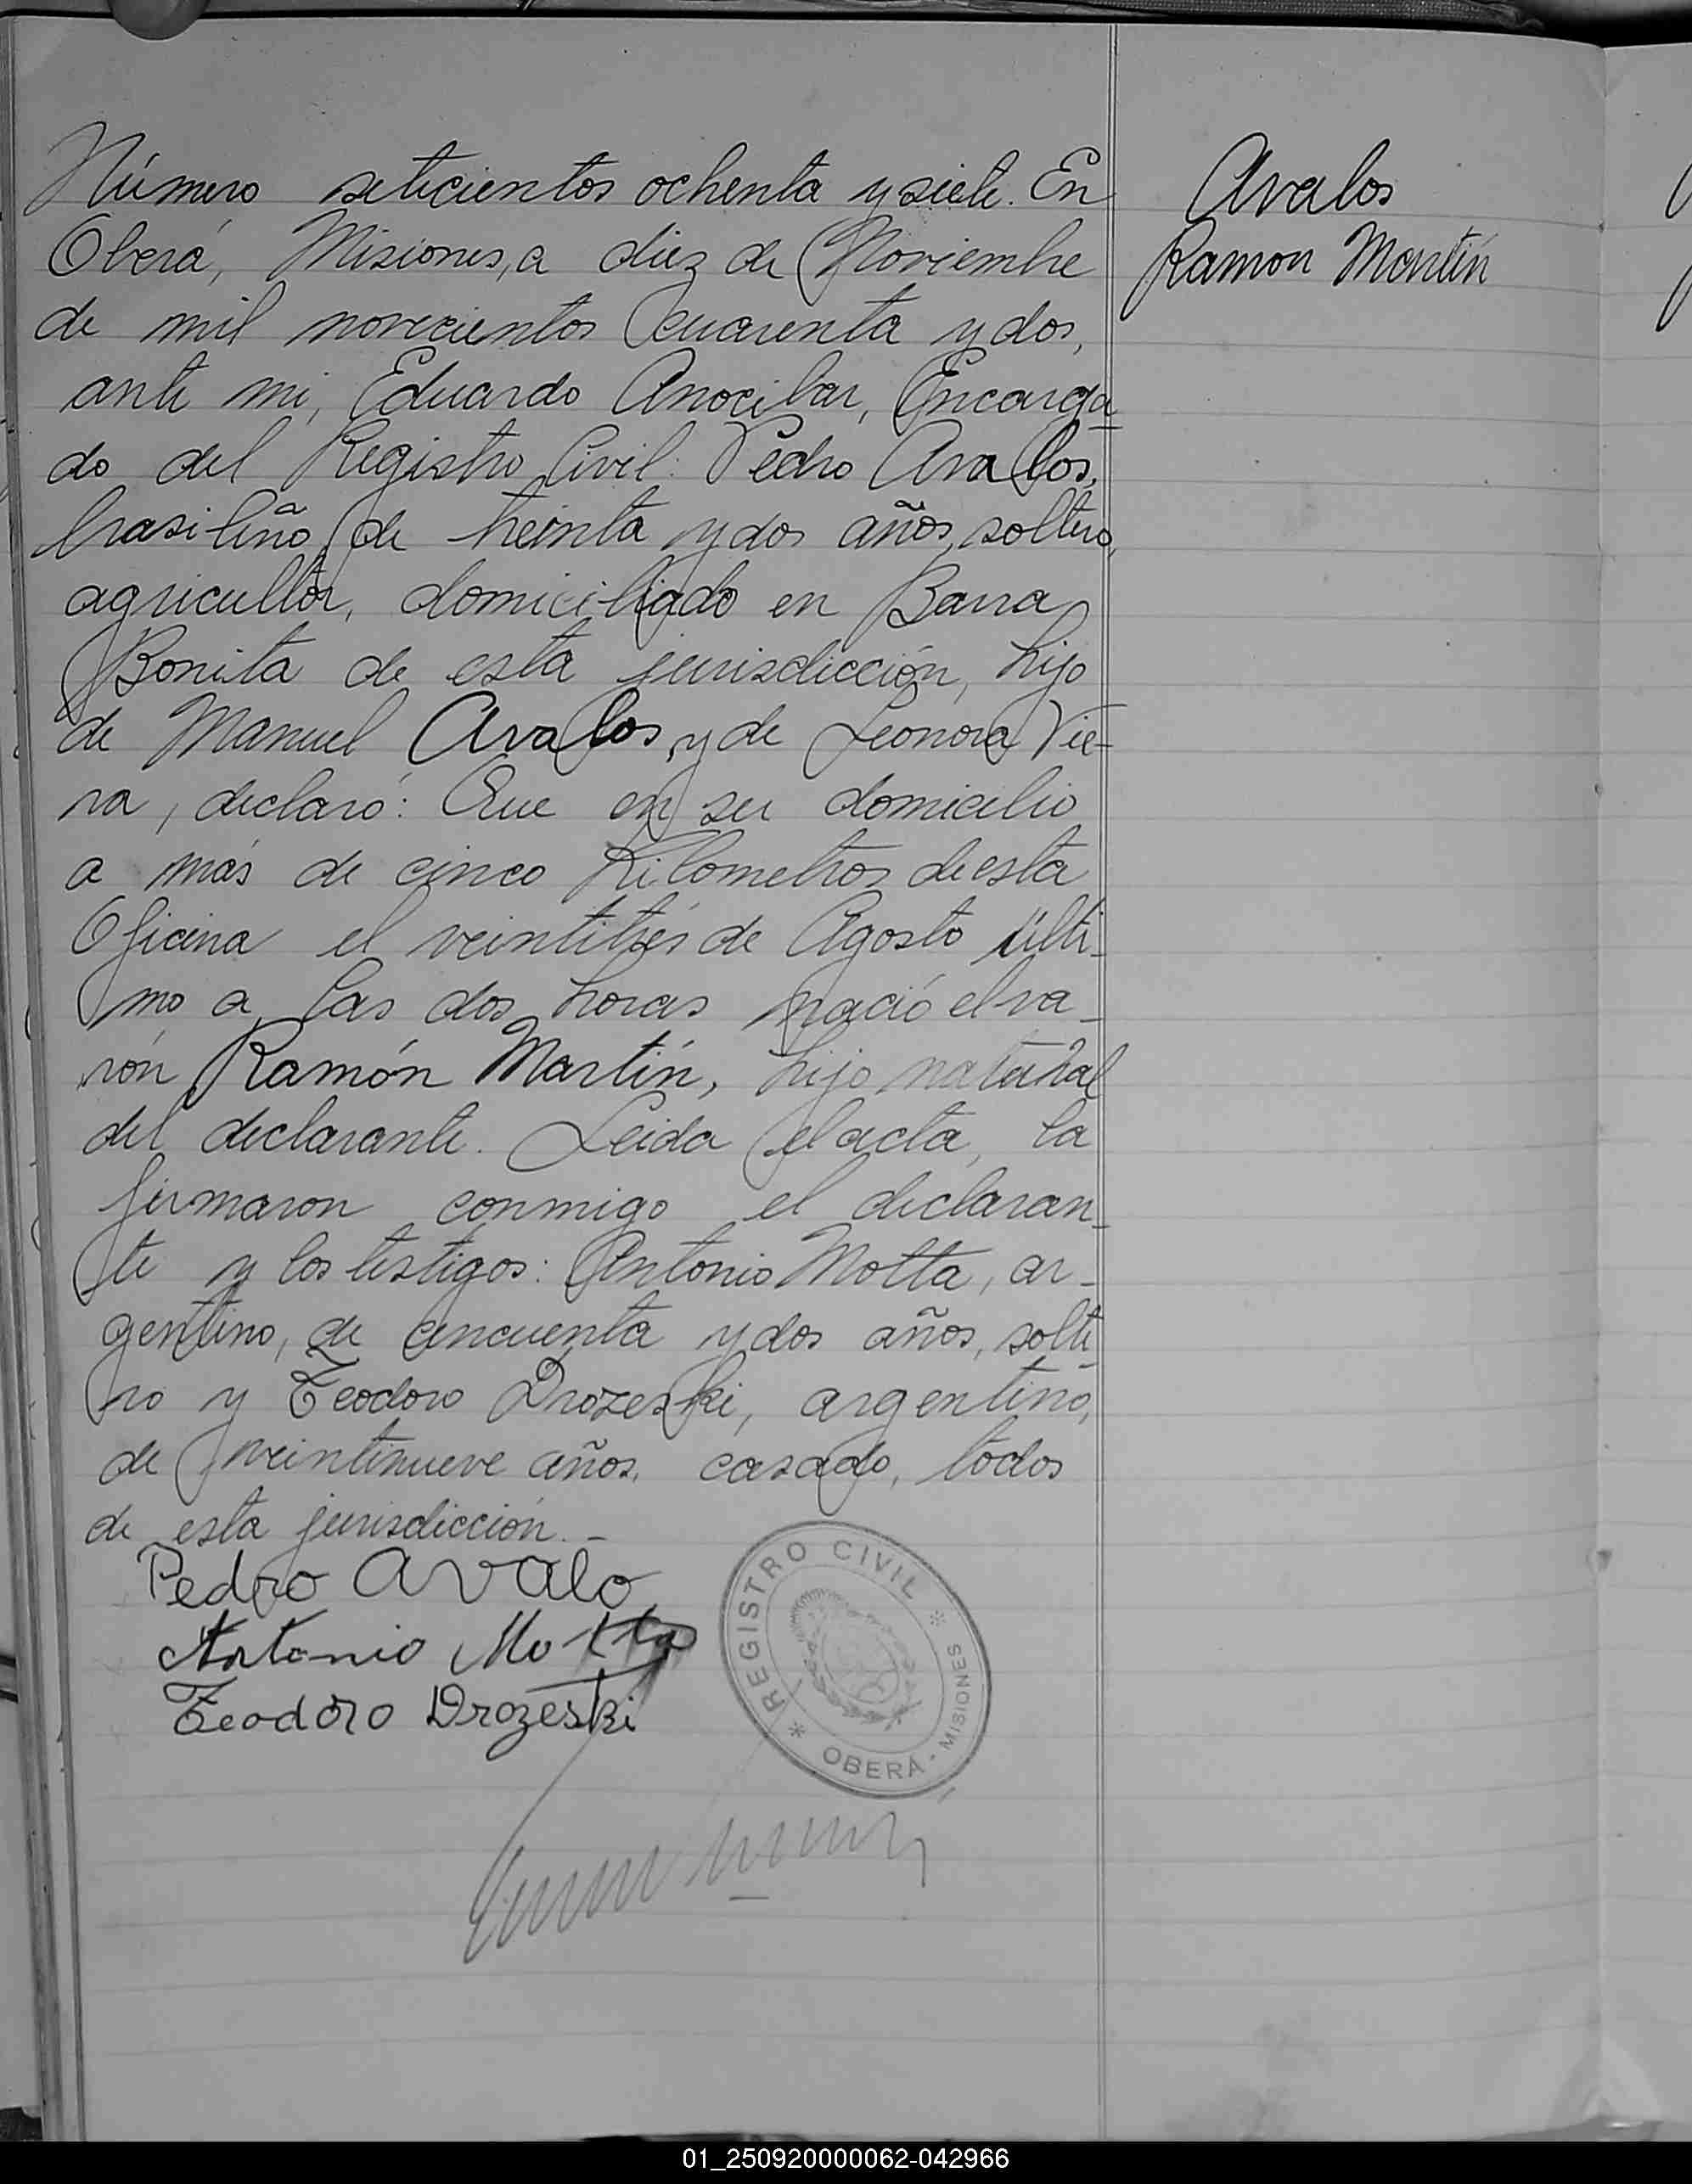 Número seticientos ochenta y siete. En
Oberá, Misiones, a diez de Noviembre
de mil novecientos cuarenta y dos,
ante mi, Eduardo Anocibar, Encarga
do del Registro Civil: Pedro Avalos,
brasileño, de treinta y dos años, soltero,
agricultor, domiciliado en Barra
Bonita de esta jurisdicción, hijo
de Manuel Avalos, y de Leonora Vie-
ra, declaró: Que en su domicilio
a más de cinco Kilometros de esta
Oficina el veintitrés de Agosto últi-
mo a las dos horas nació el va-
rón Ramón Martín, hijo natural
del declarante. Leida el acta, la
firmaron conmigo el declaran-
te y los testigos: Antonio Motta, ar-
gentino, de cincuenta y dos años, solte-
ro y Teodoro Drozeski, argentino,
de veintinueve años, casado, todos
de esta jurisdicción.-
Pedro avalo
Antonio Motta
Teodoro Drozeski
REGISTRO CIVIL
* OBERÁ - MISIONES *
Avalos
Ramon Martín
01_250920000062-042966